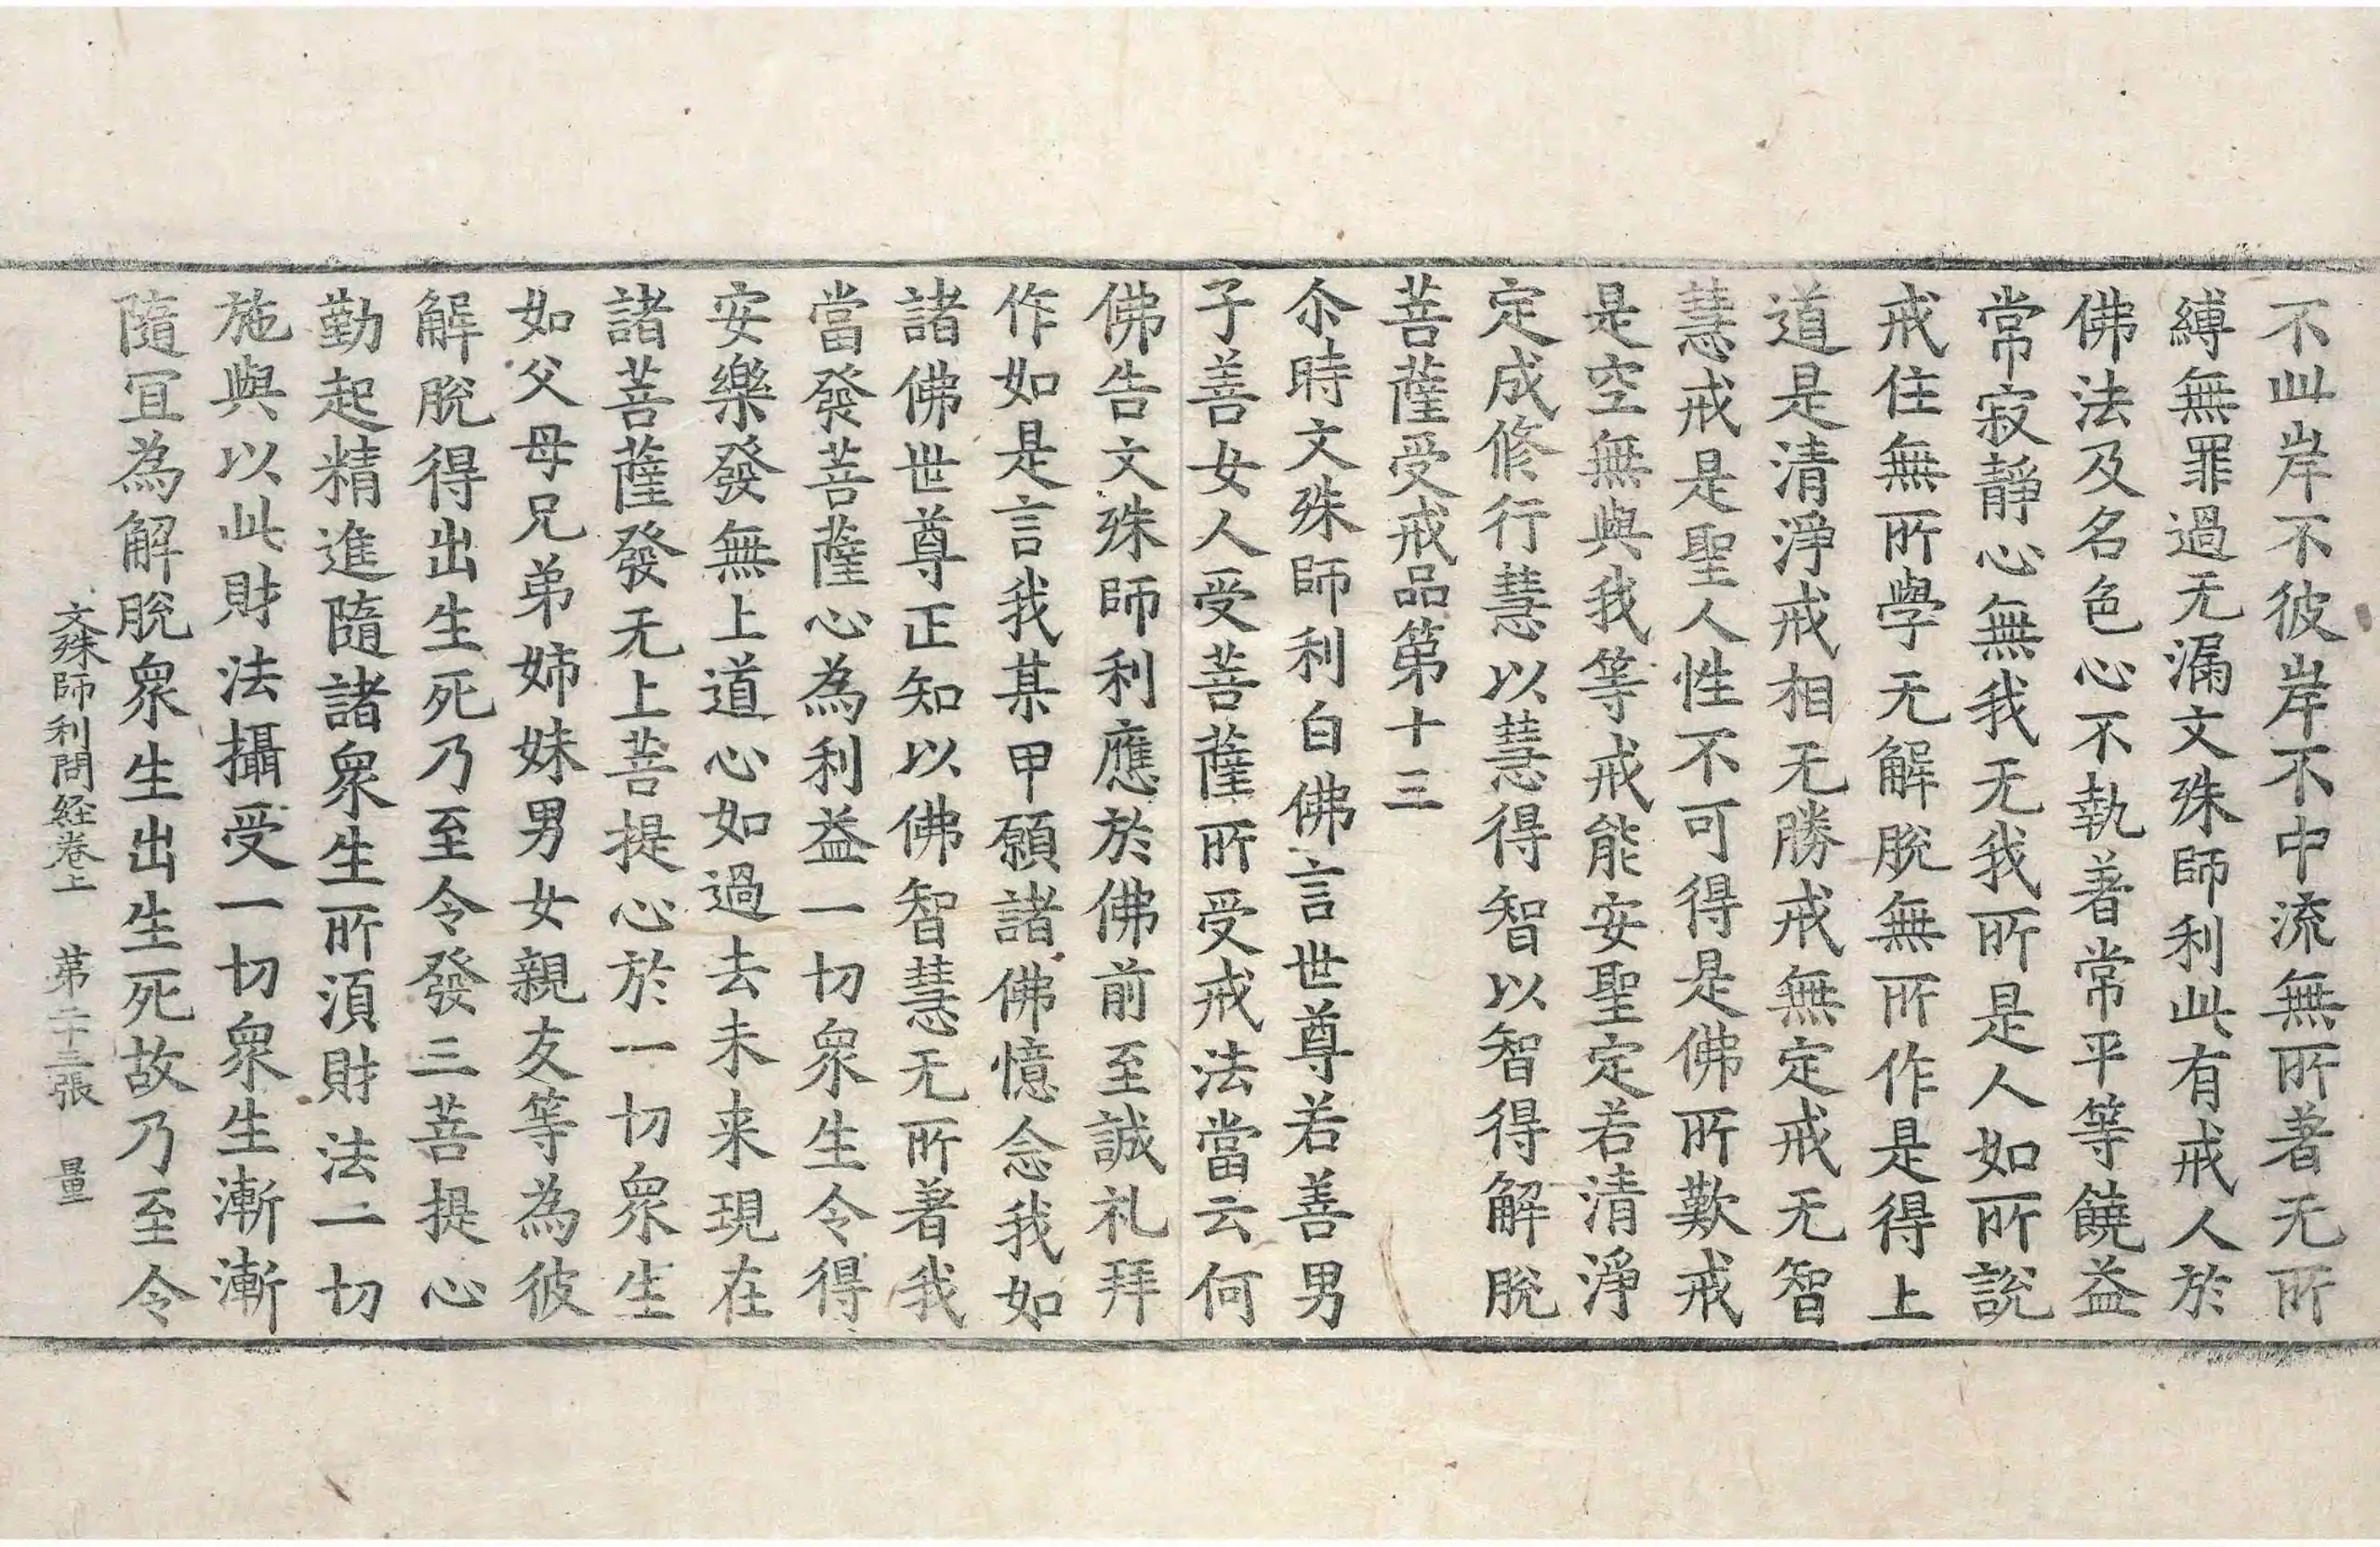 不此岸不彼岸不中流無所著无所
縛無罪過无漏文殊師利此有戒人於
佛法及名色心不執著常平等饒益
常寂靜心無我无我所是人如所說
戒住無所學无解脫無所作是得上
道是清淨戒相无勝戒無定戒无智
慧戒是聖人性不可得是佛所歎戒
是空無與我等戒能安聖定若清淨
定成修行慧以慧得智以智得解脫
菩薩受戒品第十三
尒時文殊師利白佛言世尊若善男
子善女人受菩薩所受戒法當云何
佛告文殊師利應於佛前至誠礼拜
作如是言我某甲願諸佛憶念我如
諸佛世尊正知以佛智慧无所著我
當發菩薩心為利益一切衆生令得
安樂發無上道心如過去未来現在
諸菩薩發无上菩提心於一切衆生
如父母兄弟姉妹男女親友等為彼
解脫得出生死乃至令發三菩提心
勤起精進隨諸衆生所湏財法一切
施與以此財法攝受一切衆生漸漸
隨冝為解脫衆生出生死故乃至令
文殊師利問経卷上 苐二十三張 量